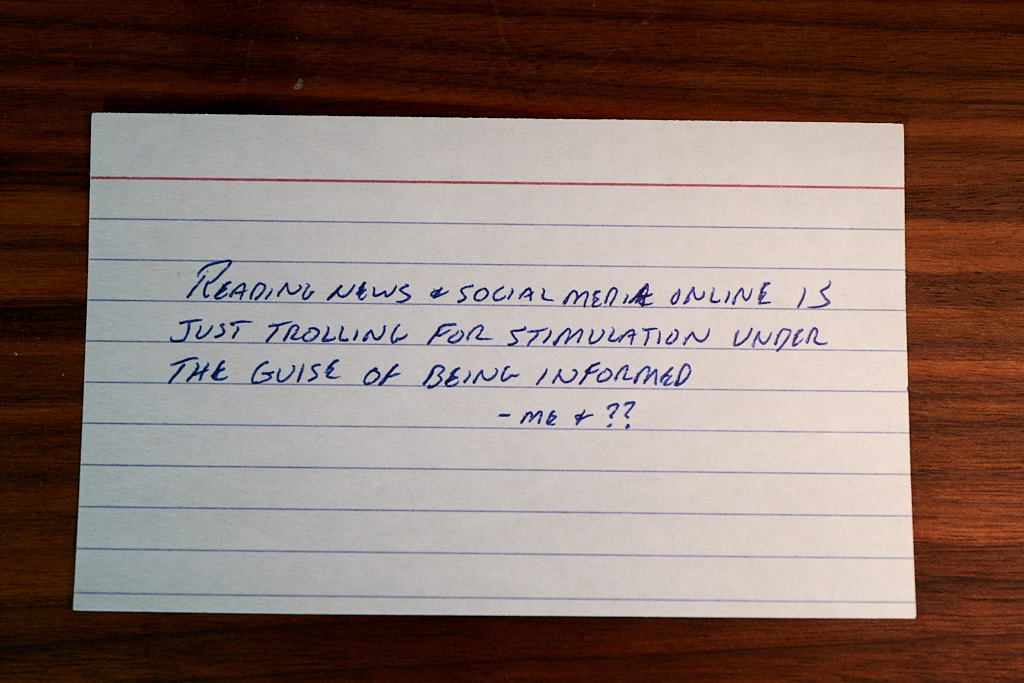 READING NEWS & SOCIAL MEDIA ONLINE IS
JUST TROLLING FOR STIMULATION UNDER
THE GUISE OF BEING INFORMED
- ME & ??